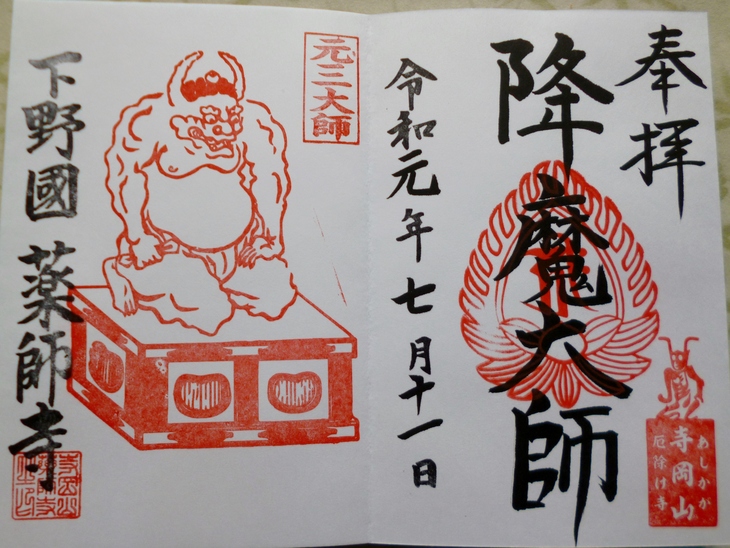 奉拝
降魔大師
令和元年七月十一日
あしかが
寺岡山
厄除け寺
元三大師
下野國 薬師寺